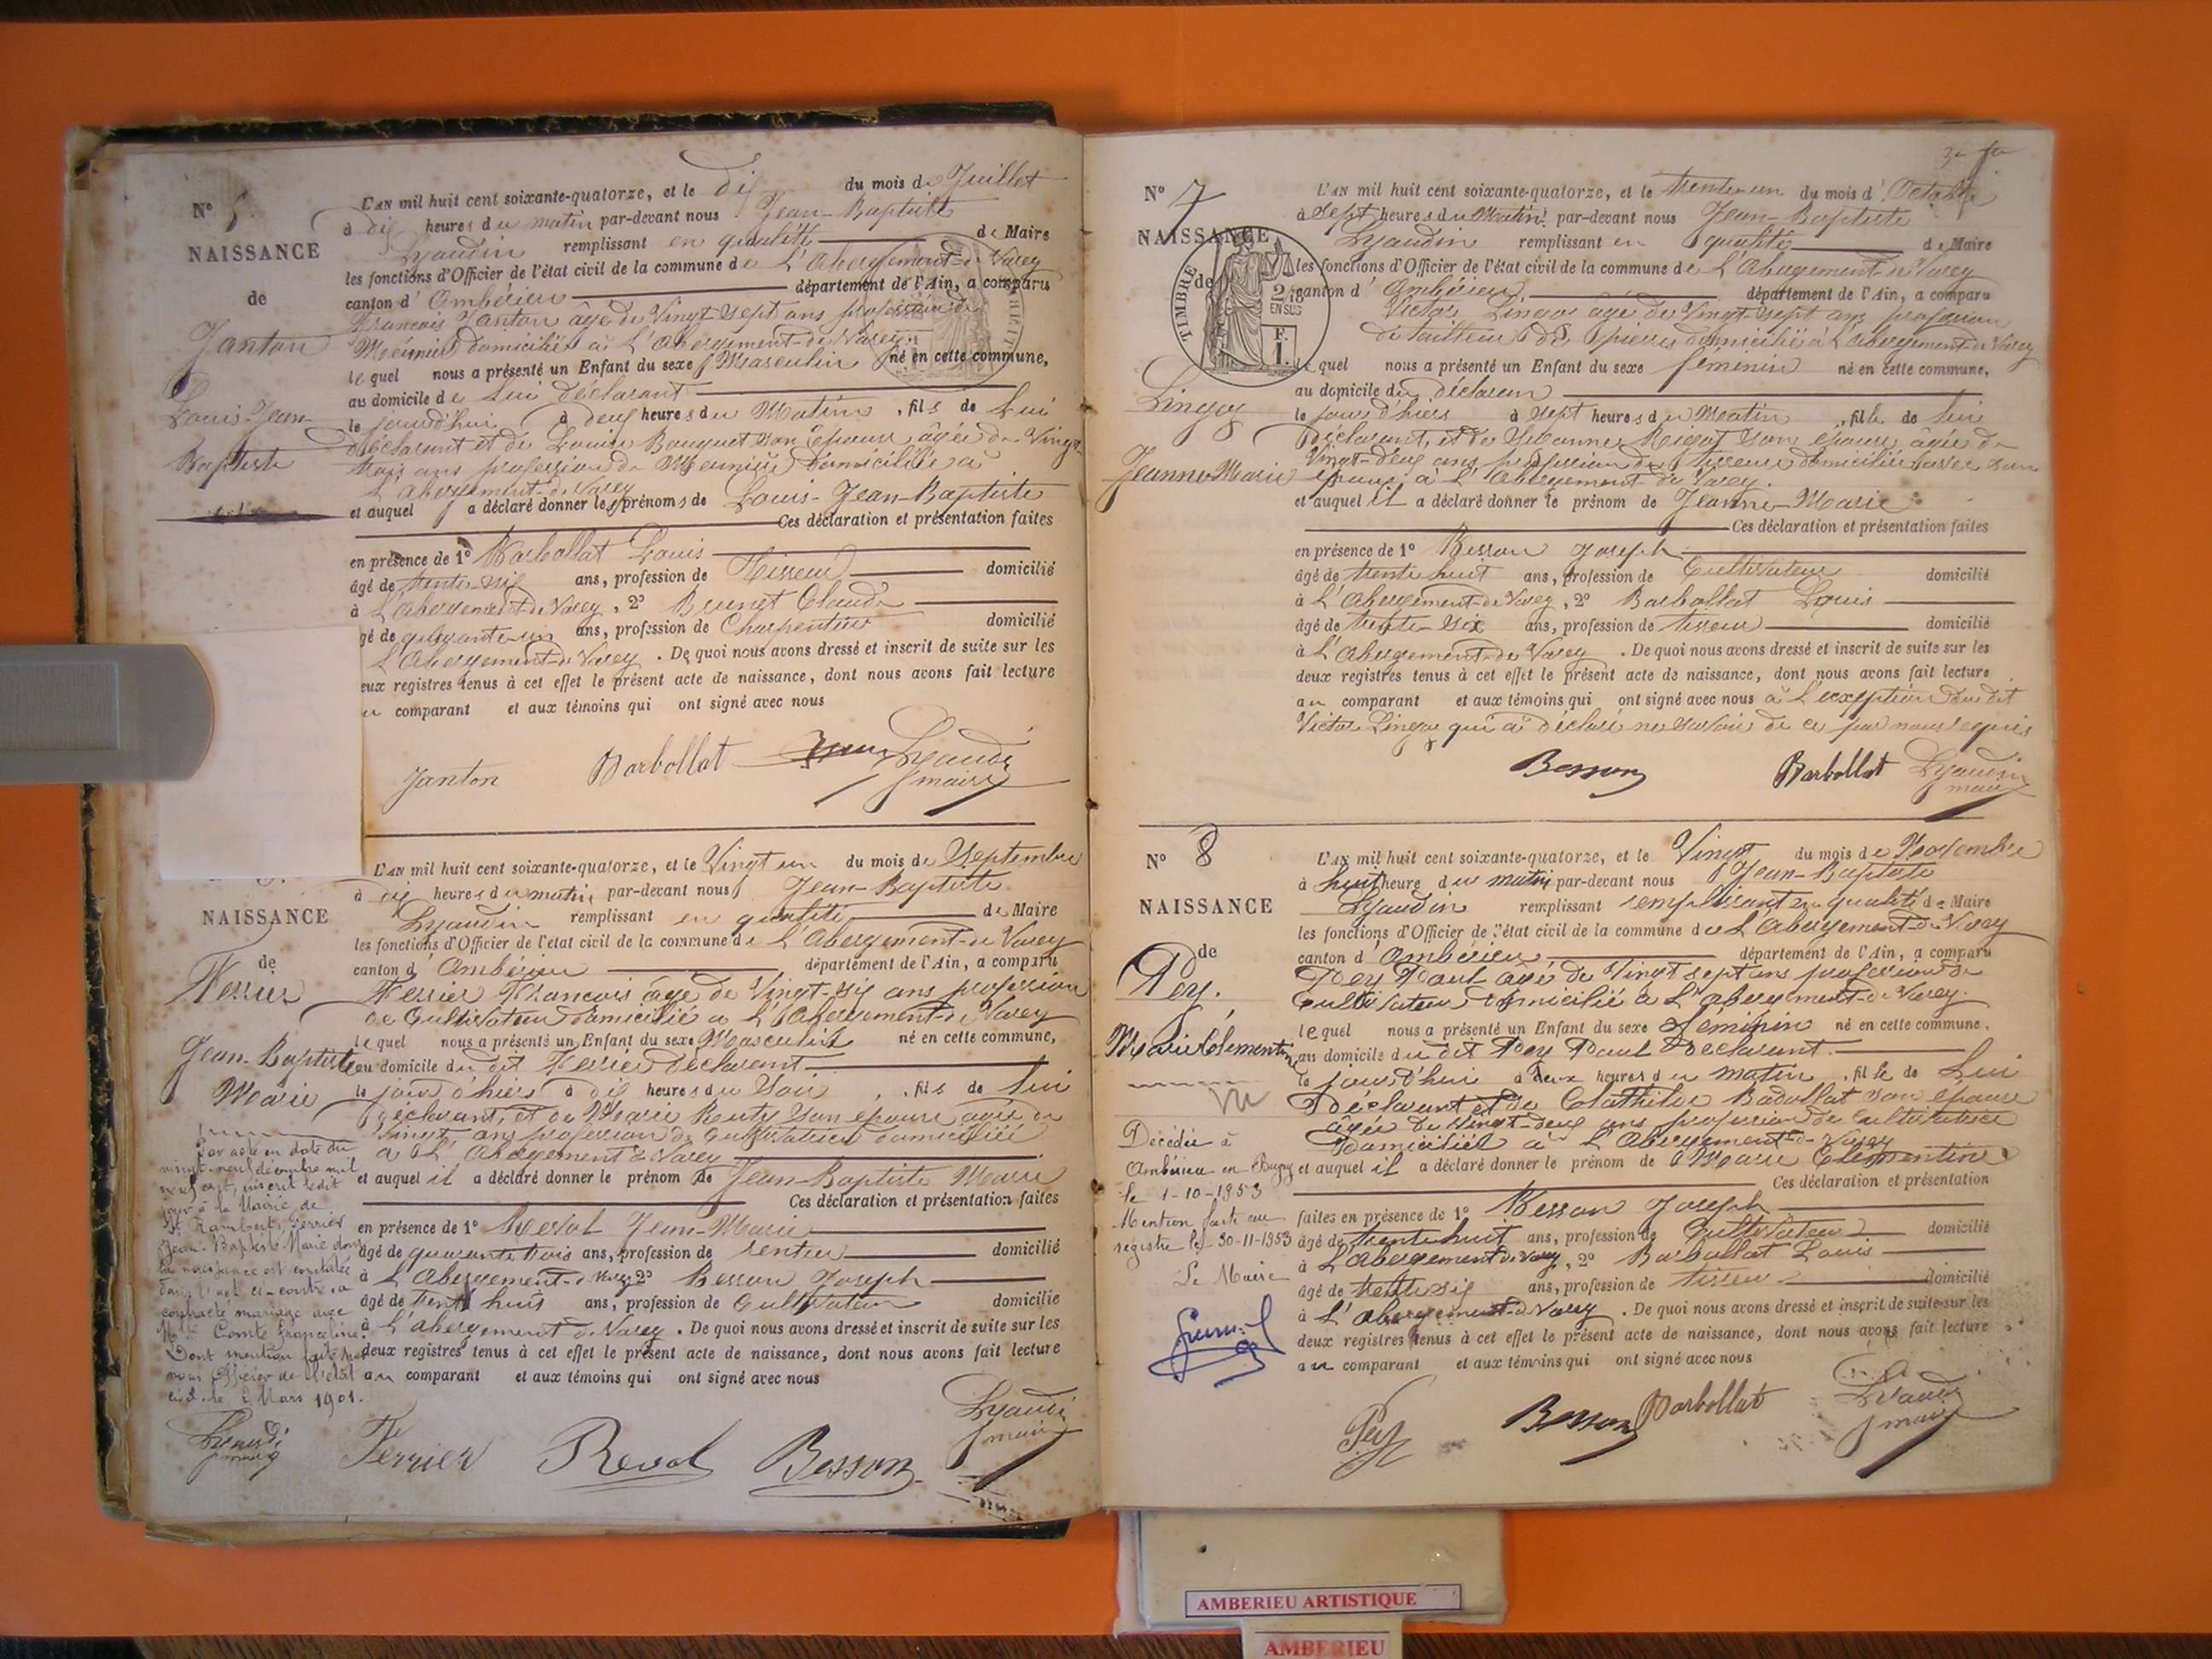 N° 5
NAISSANCE
de
Janton
Louis-Jean-
Baptiste
L'AN mil huit cent soixante-quatorze, et le dix du mois de Juillet
à dix heures du matin par-devant nous Jean-Baptiste
Lyaudin remplissant en qualité de Maire
les fonctions d'Officier de l'état civil de la commune de L'Abergement-de-Varey
canton d'Ambérieu département de l'Ain, a comparu
François Janton âgé de Vingt-sept ans profession de
Meunier domicilié à L'Abergement-de-Varey
lequel nous a présenté un Enfant du sexe Masculin né en cette commune,
au domicile de Lui déclarant
le jourd'hui à deux heures du Matin, fils de Lui
déclarant et de Louise Bouquet son épouse âgée de Vingt-
trois ans profession de Meunière domiciliée à
L'Abergement-de-Varey
et auquel il a déclaré donner les prénoms de Louis-Jean-Baptiste
Ces déclaration et présentation faites
en présence de 1° Barbollat Louis
âgé de trente-six ans, profession de Tisseur domicilié
à L'Abergement-de-Varey, 2° Brunet Claude
gé de ans, profession de Charpentier domicilié
L'Abergement-de-Varey. De quoi nous avons dressé et inscrit de suite sur les
eux registres tenus à cet effet le présent acte de naissance, dont nous avons fait lecture
au comparant et aux témoins qui ont signé avec nous
Janton Barbollat Lyaudin
maire
L'AN mil huit cent soixante-quatorze, et le Vingt un du mois de Septembre
à dix heures du matin par-devant nous Jean-Baptiste
Lyaudin remplissant en qualité de Maire
les fonctions d'Officier de l'état civil de la commune de L'Abergement-de-Varey
canton d'Ambérieu département de l'Ain, a comparu
Ferrier François âgé de Vingt-six ans profession
de Cultivateur domicilié à L'Abergement-de-Varey
lequel nous a présenté un Enfant du sexe Masculin né en cette commune,
au domicile du dit Ferrier déclarant
le jour d'hier à dix heures du Soir, fils de Lui
déclarant, et de Marie Reuty son épouse âgée de
Vingt ans profession de Cultivatrice domiciliée
à L'Abergement-de-Varey
et auquel il a déclaré donner le prénom de Jean-Baptiste Marie
Ces déclaration et présentation faites
en présence de 1° Revol Jean-Marie
âgé de quarante trois ans, profession de rentier domicilié
à L'Abergement-de-Varey 2° Besson Joseph
âgé de trente huit ans, profession de Cultivateur domicilié
à L'Abergement-de-Varey. De quoi nous avons dressé et inscrit de suite sur les
deux registres tenus à cet effet le présent acte de naissance, dont nous avons fait lecture
au comparant et aux témoins qui ont signé avec nous
NAISSANCE
de
Ferrier
Jean-Baptiste
Marie
Par acte en date du
vingt-neuf décembre mil
neuf cent, inscrit ledit
jour à la Mairie de
St Rambert, Ferrier
Jean-Baptiste Marie dont
la naissance est constatée
dans l'acte ci-contre a
contracté mariage avec
Mlle Comte Franceline.
Dont mention faite par
nous Officier de l'état
civil le 2 Mars 1901.
Lyaudin
maire
Ferrier Revol Besson Lyaudin
maire
N° 7
NAISSANCE
de
TIMBRE
2/10
EN SUS
F.
1.
Lingoy
Jeanne Marie
L'AN mil huit cent soixante-quatorze, et le trente-un du mois d'Octobre
à sept heures du Matin par-devant nous Jean-Baptiste
Lyaudin remplissant en qualité de Maire
les fonctions d'Officier de l'état civil de la commune de L'Abergement-de-Varey
canton d'Ambérieu, département de l'Ain, a comparu
Victor Lingoy âgé de Vingt-sept ans profession
de tailleur de pierre domicilié à L'Abergement-de-Varey
lequel nous a présenté un Enfant du sexe féminin né en cette commune,
au domicile du déclarant
le jour d'hiers à sept heures du Matin, fille de lui
Déclarant, et de son épouse âgée de
Vingt-deux ans profession de tisseuse domiciliée avec son
époux à L'Abergement-de-Varey.
et auquel il a déclaré donner le prénom de Jeanne-Marie
Ces déclaration et présentation faites
en présence de 1° Besson Joseph
âgé de trente huit ans, profession de Cultivateur domicilié
à L'Abergement-de-Varey, 2° Barbollat Louis
âgé de trente-six ans, profession de tisseur domicilié
à L'Abergement-de-Varey. De quoi nous avons dressé et inscrit de suite sur les
deux registres tenus à cet effet le présent acte de naissance, dont nous avons fait lecture
au comparant et aux témoins qui ont signé avec nous à l'exception du dit
Victor Lingoy qui a déclaré ne savoir de ce par nous requis
Besson Barbollat Lyaudin
maire
N° 8
NAISSANCE
de
Pey.
Marie Clémentine
Décédée à
Ambérieu en Bugey
le 1-10-1953
Mention faite au
registre le 30-11-1953
Le Maire
L'AN mil huit cent soixante-quatorze, et le Vingt du mois de Novembre
à huit heure du matin par-devant nous Jean-Baptiste
Lyaudin remplissant remplissant en qualité de Maire
les fonctions d'Officier de l'état civil de la commune de L'Abergement-de-Varey
canton d'Ambérieu département de l'Ain, a comparu
Pey Paul âgé de Vingt sept ans profession de
Cultivateur domicilié à L'Abergement-de-Varey.
lequel nous a présenté un Enfant du sexe Féminin né en cette commune,
au domicile du dit Pey Paul Déclarant
le jourd'hui à deux heures du matin, fille de Lui
Déclarant et de Clathilde Badollat son épouse
âgée de Vingt-deux ans profession de Cultivatrice
Domiciliée à L'Abergement-de-Varey
et auquel il a déclaré donner le prénom de Marie Clémentine
Ces déclaration et présentation
faites en présence de 1° Besson Joseph
âgé de trente huit ans, profession de Cultivateur domicilié
à L'Abergement-de-Varey, 2° Barbollat Louis
âgé de trente six ans, profession de tisseur domicilié
à L'Abergement-de-Varey. De quoi nous avons dressé et inscrit de suite sur les
deux registres tenus à cet effet le présent acte de naissance, dont nous avons fait lecture
au comparant et aux témoins qui ont signé avec nous
Pey Besson Barbollat Lyaudin
maire
AMBERIEU ARTISTIQUE
AMBERIEU